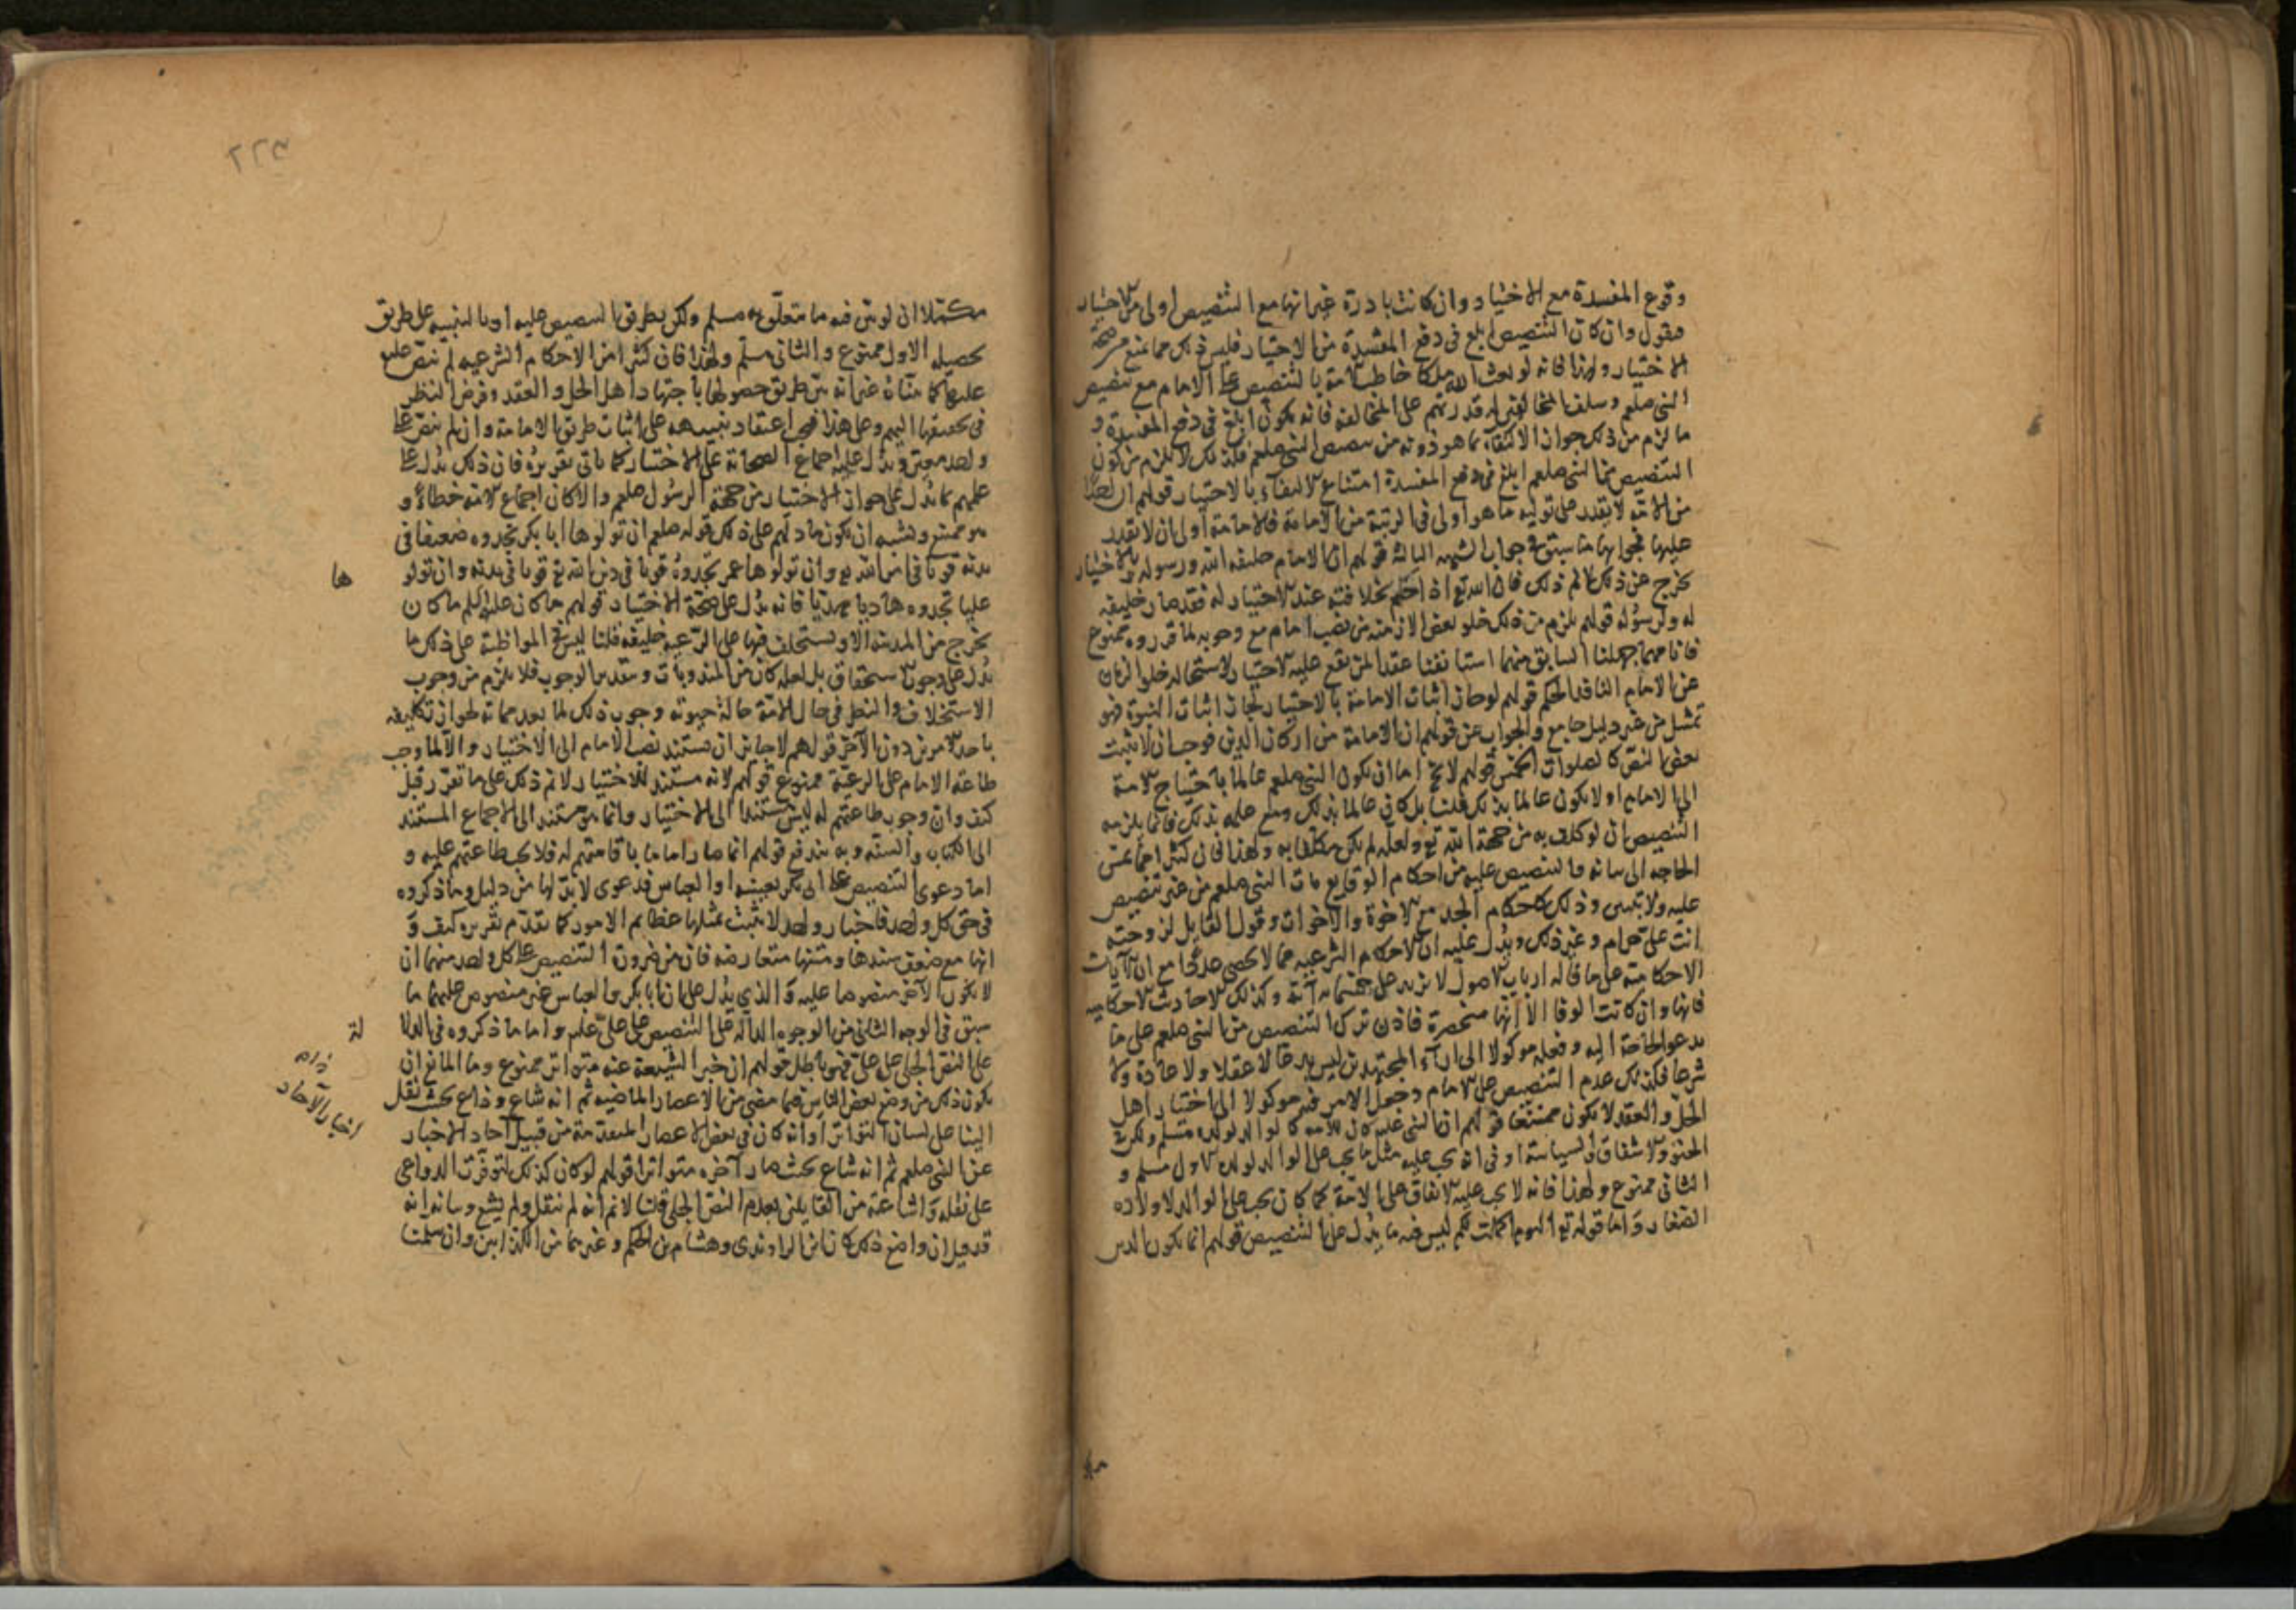 وقوع المفسدة مع الاختيار وان كانت نادرة غير انها مع التنصيص اولى من الاختيار
فنقول وان كان التنصيص ابلغ فى دفع المفسدة من الاختيار فليس ذلك مما يمنع من صحة
الاختيار ولهذا فانه لو بعث الله ملكا خاطب الامة بالتنصيص على الامام مع تنصيص
النبى صلعم وسلب المخالفين له قدرتهم على المخالفة فانه يكون ابلغ فى دفع المفسدة و
ما لزم من ذلك جواز الاكتفاء بما هو دونه من تنصيص النبى صلعم فكذلك لا يلزم من كون
التنصيص من النبى صلعم ابلغ فى دفع المفسدة امتناع الاكتفاء بالاختيار قولهم ان احدا
من الامة لا يقدر على تولية ما هو اولى فى الرتبة من الامامة فالامامة اولى ان لا يقدر
عليها فجوابها ما سبق فى جواب الشبهة الثالثة قولهم ان الامام خليفة الله ورسوله وبالاختيار
يخرج عن ذلك لا نم ذلك فان الله تع اذا حكم بخلافته عند الاختيار له فقد صار خليفة
له ولرسوله قولهم يلزم من ذلك خلو بعض الازمنة من نصب امام مع وجوبه لما قرروه ممنوع
فانا مهما جهلنا السابق منهما استانفنا عقدا لمن يقع عليه الاختيار لاستحالة خلو الزمان
عن الامام النافذ الحكم قولهم لو جاز اثبات الامامة بالاختيار لجاز اثبات النبوة فهو
تمثيل من غير دليل جامع والجواب عن قولهم ان الامامة من اركان الدين فوجب ان لا يثبت
بغير النص كالصلوات الخمس قولهم لا يخ اما ان يكون النبى صلعم عالما باحتياج الامة
الى الامام او لا يكون عالما بذلك قلنا بل كان عالما بذلك ومع علمه بذلك فانما يلزمه
التنصيص ان لو كلف به من جهة الله تع ولعله لم يكن مكلفا به ولهذا فان كثيرا مما تمس
الحاجه الى بيانه والتنصيص عليه من احكام الوقايع مات النبى صلعم من غير تنصيص
عليه ولا تبيين وذلك كاحكام الجد مع الاخوة والاخوات وقول القايل لزوجته
انت على حرام وغير ذلك ويدل عليه ان الاحكام الشرعية مما لا يحصى عددا مع ان الايات
الاحكامية على ما قاله ارباب الاصول لا تزيد على خمسمايه آية وكذلك الاحاديث الاحكامية
فانها وان كانت الوفا الا انها منحصرة فاذن ترك التنصيص من النبى صلعم على ما
يدعو الحاجة اليه وجعله موكولا الى اراء المجتهدين ليس بدعا لا عقلا ولا عادة ولا
شرعا فكذلك عدم التنصيص على الامام وجعل الامر فيه موكولا الى اختيار اهل
الحل والعقد لا يكون ممتنعا قولهم ان النبى عليه كان للامة كالوالد لولده مسلم ولكن فى
الحنو والاشفاق والسياسة او فى انه يجب عليه مثل ما يجب على الوالد لولده الاول مسلم و
الثانى ممنوع ولهذا فانه لا يجب عليه الانفاق على الامة كما كان يجب على الوالد لاولاده
الصغار واما قوله تع اليوم اكملت لكم ليس فيه ما يدل على التنصيص قولهم انما يكون الدين
مكتملا ان لو بين فيه ما يتعلق به مسلم ولكن بطريق التنصيص عليه او بالتنبيه على طريق
تحصيله الاول ممنوع والثانى مسلم ولهذا فان كثيرا من الاحكام الشرعيه لم ينص عليه
عليها كما بيناه غير انه بين طريق حصولها باجتهاد اهل الحل والعقد وفوض النظر
فى تحصيلها اليهم وعلى هذا فيجب اعتقاد تنبيهه على اثبات طريق الامامة وان لم ينص على
واحد معين ويدل عليه اجماع الصحابة على الاختيار كما ياتى تقريره فان ذلك يدل على
علمهم بما يدل على جواز الاختيار من جهة الرسول صلعم والا كان اجماع الامة خطاء و
هو ممتنع ويشبه ان يكون ما دلهم على ذلك قوله صلعم ان تولوها ابا بكر تجدوه ضعيفا فى
بدنه قويا فى امر الله تع وان تولوها عمر تجدوه قويا فى دين الله تع قويا فى بدنه وان تولو
ها
عليا تجدوه هاديا مهديا فانه يدل على صحة الاختيار قولهم ما كان عليه السلم ما كان
يخرج من المدينة الا ويستخلف فيها على الرعية خليفة قلنا ليس فى المواظبة على ذلك ما
يدل على وجوب الاستحقاق بل لعله كان من المندوبات وبتقدير الوجوب فلا يلزم من وجوب
الاستخلاف والنظر فى حال الامة حالة حيوته وجوب ذلك لما بعد مماته لجواز تكليفه
باحد الامرين دون الآخر قولهم لا جايز ان يستند نصب الامام الى الاختيار والا لما وجب
طاعة الامام على الرعية ممنوع قولهم لانه مستند للاختيار لا نم ذلك على ما تقرر قبل
كيف وان وجوب طاعتهم له ليس مستندا الى الاختيار وانما هو مستند الى الاجماع المستند
الى الكتاب والسنة وبه يندفع قولهم انما صار اماما باقامتهم له فلا يجب طاعتهم عليه و
اما دعوى التنصيص على ابى بكر بعينه او العباس فدعوى لا بد لها من دليل وما ذكروه
فى حق كل واحد فاخبار واحد لا يثبت بمثلها عظايم الامور كما تقدم تقريره كيف و
انها مع ضعف سندها ومتنها متعارضه فان من ضرورة التنصيص على كل واحد منهما ان
لا يكون الآخر منصوصا عليه والذي يدل على ان ابا بكر والعباس غير منصوص عليهما ما
سبق فى الوجه الثانى من الوجوه الدالة على التنصيص على على عليه واما ما ذكروه فى الدلا
لة
على النص الجلى على على فهو باطل قولهم ان خبر الشيعة عنه متواتر ممنوع وما المانع ان
يكون ذلك من وضع بعض الناس فيما مضى من الاعصار الماضيه ثم انه شاع وذاع بحيث نقل
الينا على لسان التواتر او انه كان فى بعض الاعصار المتقدمة من قبيل احاد الاخبار
عن النبى صلعم ثم انه شاع بحيث صار آخره متواترا قولهم لو كان كذلك لتوفرت الدواعى
على نقله واشاعته من القايلين بعدم النص الجلى قلنا لا نم انه لم ينقل ولم يشع وبيانه انه
قد قيل ان واضع ذلك كان ابن الراوندى وهشام بن الحكم وغيرهما من الكذابين وان سلمت
اخبار الآحاد